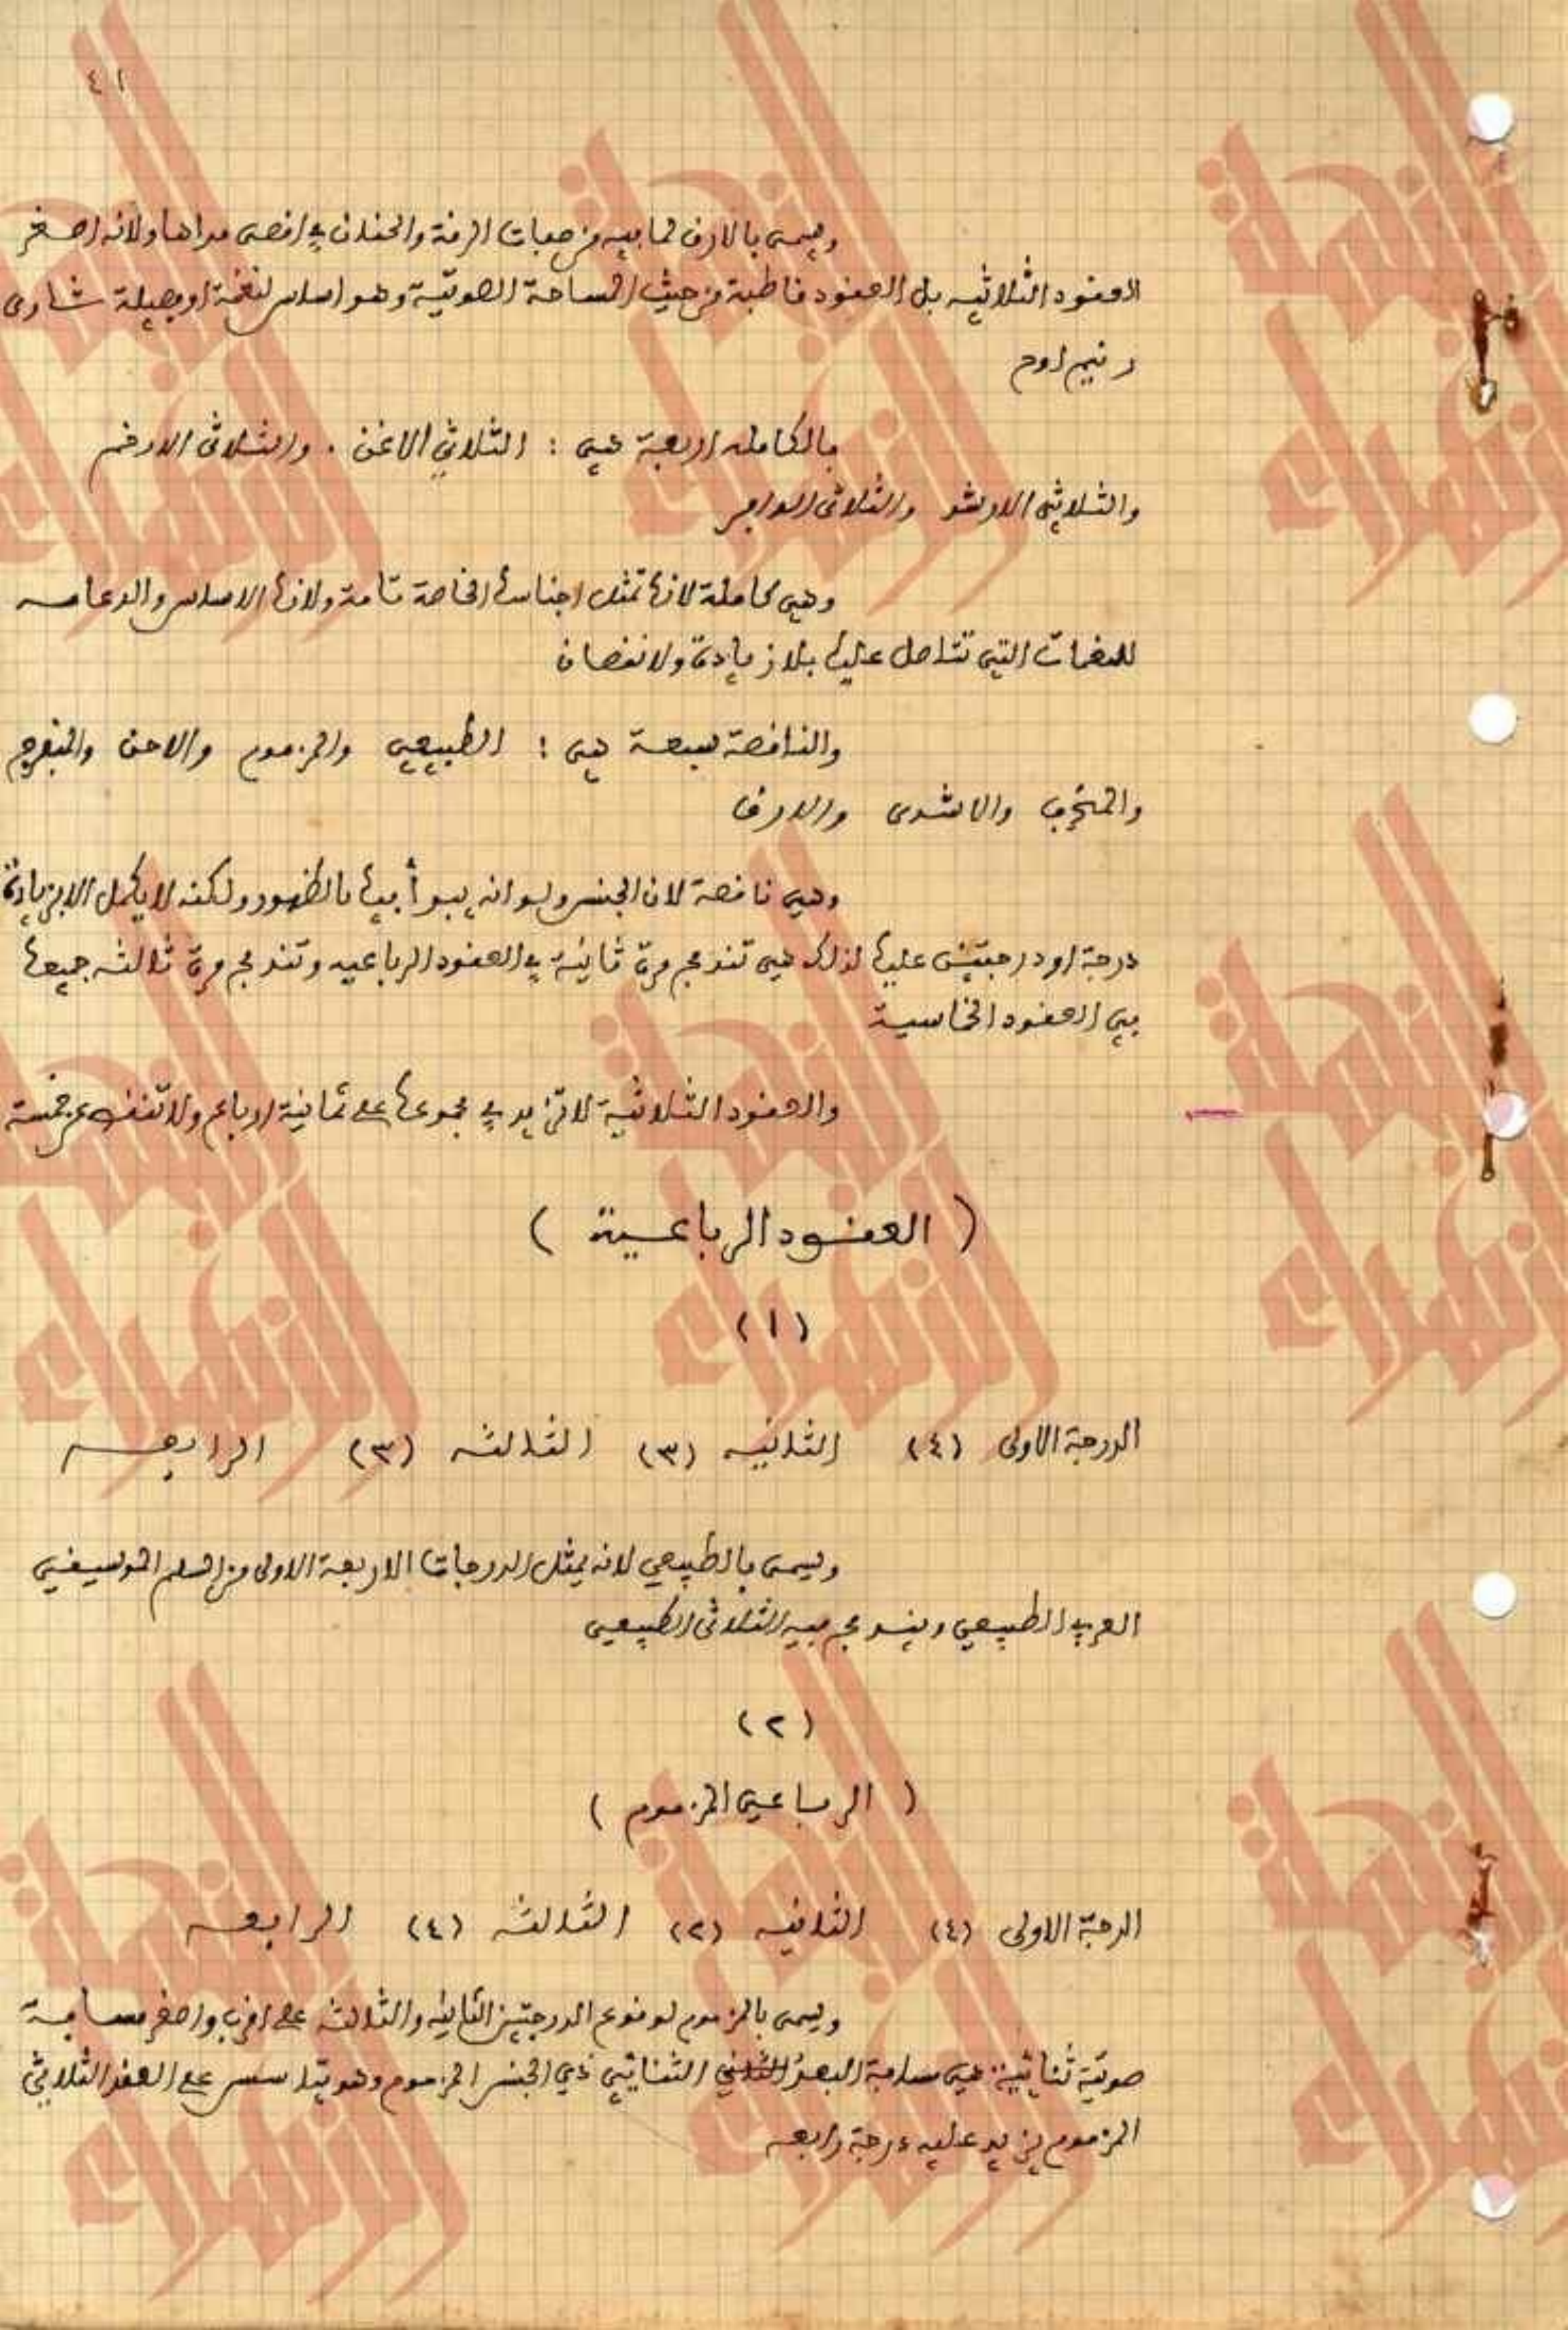 ٤١
ويسمى بالارق لما فيه من صفات الرقة والحنان في اقصى مداها ولانه اصغر
العقود الثلاثيه بل العقود قاطبة من حيث المساحة الصوتيّة وهو اساس لنغمة او فصيلة
بالكامله اربعة هي : الثلاثي الاغن . والثلاثي الارخم
والثلاثي
وهي كاملة لانها تمثل اجناسها الخاصة تامة ولانها الاساس والدعامه
للنغمات التي تتاصل عليها بلا زيادة ولا نقصان
والناقصة سبعة هي : الطبيعي والمزموم والاحن والمفرح
والاشدى والارق
وهي ناقصة لان الجنس ولو انه يبدأ فيها بالظهور ولكنه لا يكمل الا بزيادة
درجة او درجتين عليها لذلك هي تندمج مرة ثانية في العقود الرباعيه وتندمج مرة ثالثه جميعها
في العقود الخماسية
والعقود الثلاثية لا تزيد في مجموعها على ثمانية ارباع ولا تنقص عن خمسة
( العقود الرباعية )
(١)
الدرجة الاولى (٤) الثانيه (٣) الثالثه (٣) الرابعه
ويسمى بالطبيعي لانه يمثل الدرجات الاربعة الاولى من السلم الموسيقي
العربي الطبيعي ويندمج فيه الثلاثي الطبيعي
(٢)
( الرباعي المزموم )
الدرجة الاولى (٤) الثانيه (٢) الثالثه (٤) الرابعه
ويسمى بالمزموم لوقوع الدرجتين الثانيه والثالثه على اقرب واصغر مسافة
صوتيّة ثنائية هي مسافة البعد الثنائي ذي الجنس المزموم وهو يتاسس على العقد الثلاثي
المزموم يزيد عليه درجة رابعه
النهضة
الزهراء